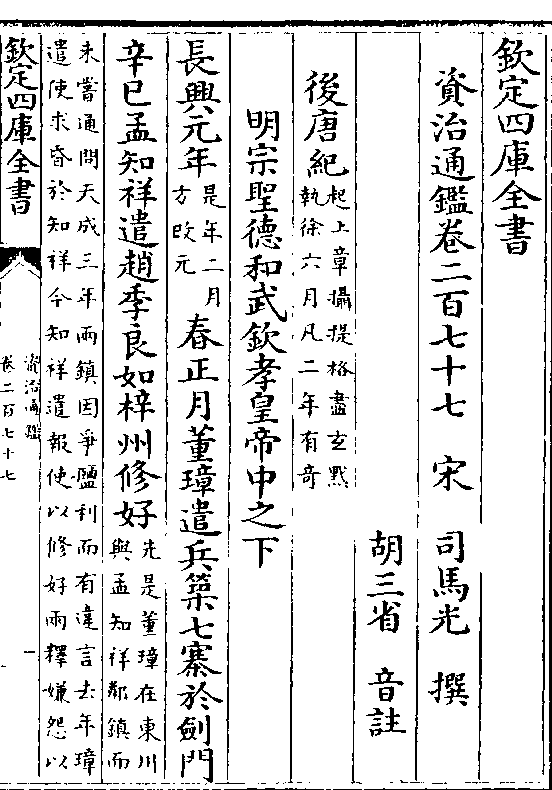 欽定四庫全書
資治通鑑卷二百七十七 宋 司馬光 撰
胡三省 音註
後唐紀 起上章攝提格盡玄黓
執徐六月凡二年有奇
明宗聖德和武欽孝皇帝中之下
長興元年 是年二月
方改元 春正月董璋遣兵築七寨於劍門
辛巳孟知祥遣趙季良如梓州修好 先是董璋在東川
與孟知祥鄰鎮而
未嘗通問天成三年兩鎮因爭鹽利而有違言去年璋
遣使求昏於知祥今知祥遣報使以修好兩釋嫌怨以
欽定四庫全書
資治通鑑
卷二百七十七
一